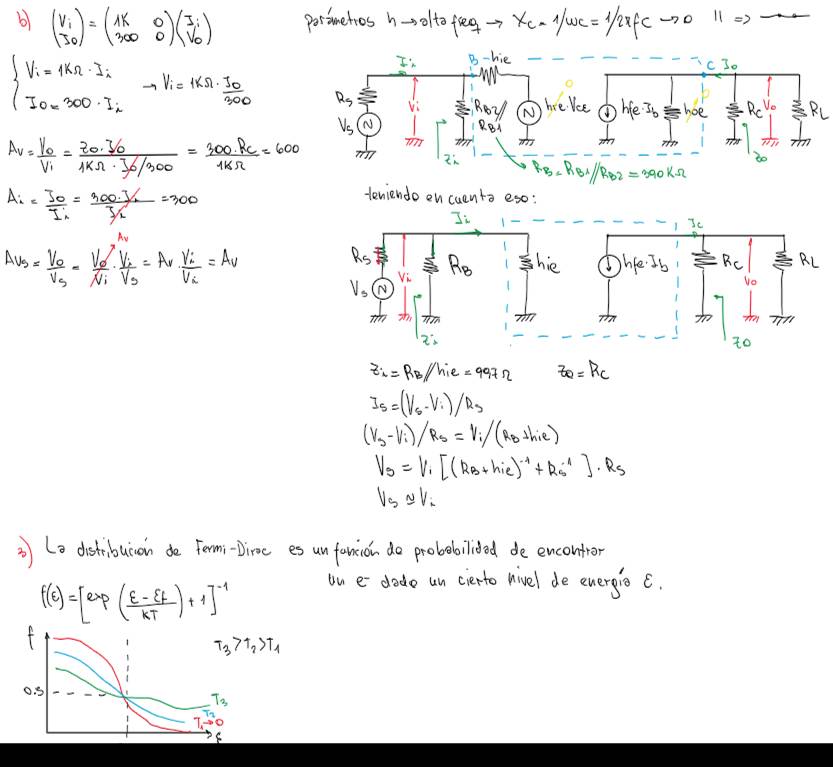 b) (Vi Io) = (1K 0 300 0)(Ii Vo)
{ Vi = 1KΩ · Ii
Io = 300 · Ii
→ Vi = 1KΩ · Io/300
Av = Vo/Vi = Zo·Io / 1KΩ · Io/300 = 300·Rc / 1KΩ = 600
Ai = Io/Ii = 300·Ii / Ii = 300
Avs = Vo/Vs = Vo/Vi · Vi/Vs = Av · Vi/Vi = Av
Av
parámetros h → alta freq → Xc = 1/ωc = 1/2πfC → 0 || =>
Ii B hie C Io
Rs Vs Vi RB2// RB1 hre·Vce 0 hfe·Ib hoe 0 Rc Vo RL
Zi Zo
RB = RB1//RB2 = 390KΩ
teniendo en cuenta eso:
Ii Ic
Rs Vs Vi RB hie hfe·Ib Rc Vo RL
Zi Zo
Zi = RB//hie = 997Ω Zo = Rc
Is = (Vs-Vi)/Rs
(Vs-Vi)/Rs = Vi/(RB+hie)
Vs = Vi [(RB+hie)⁻¹ + Rs⁻¹] · Rs
Vs ≃ Vi
3) La distribución de Fermi-Dirac es un función de probabilidad de encontrar
un e⁻ dado un cierto nivel de energía ε.
f(ε) = [exp (ε - εf / KT) + 1]⁻¹
f
T3 > T2 > T1
0.5
T3
T2
T1→0
ε